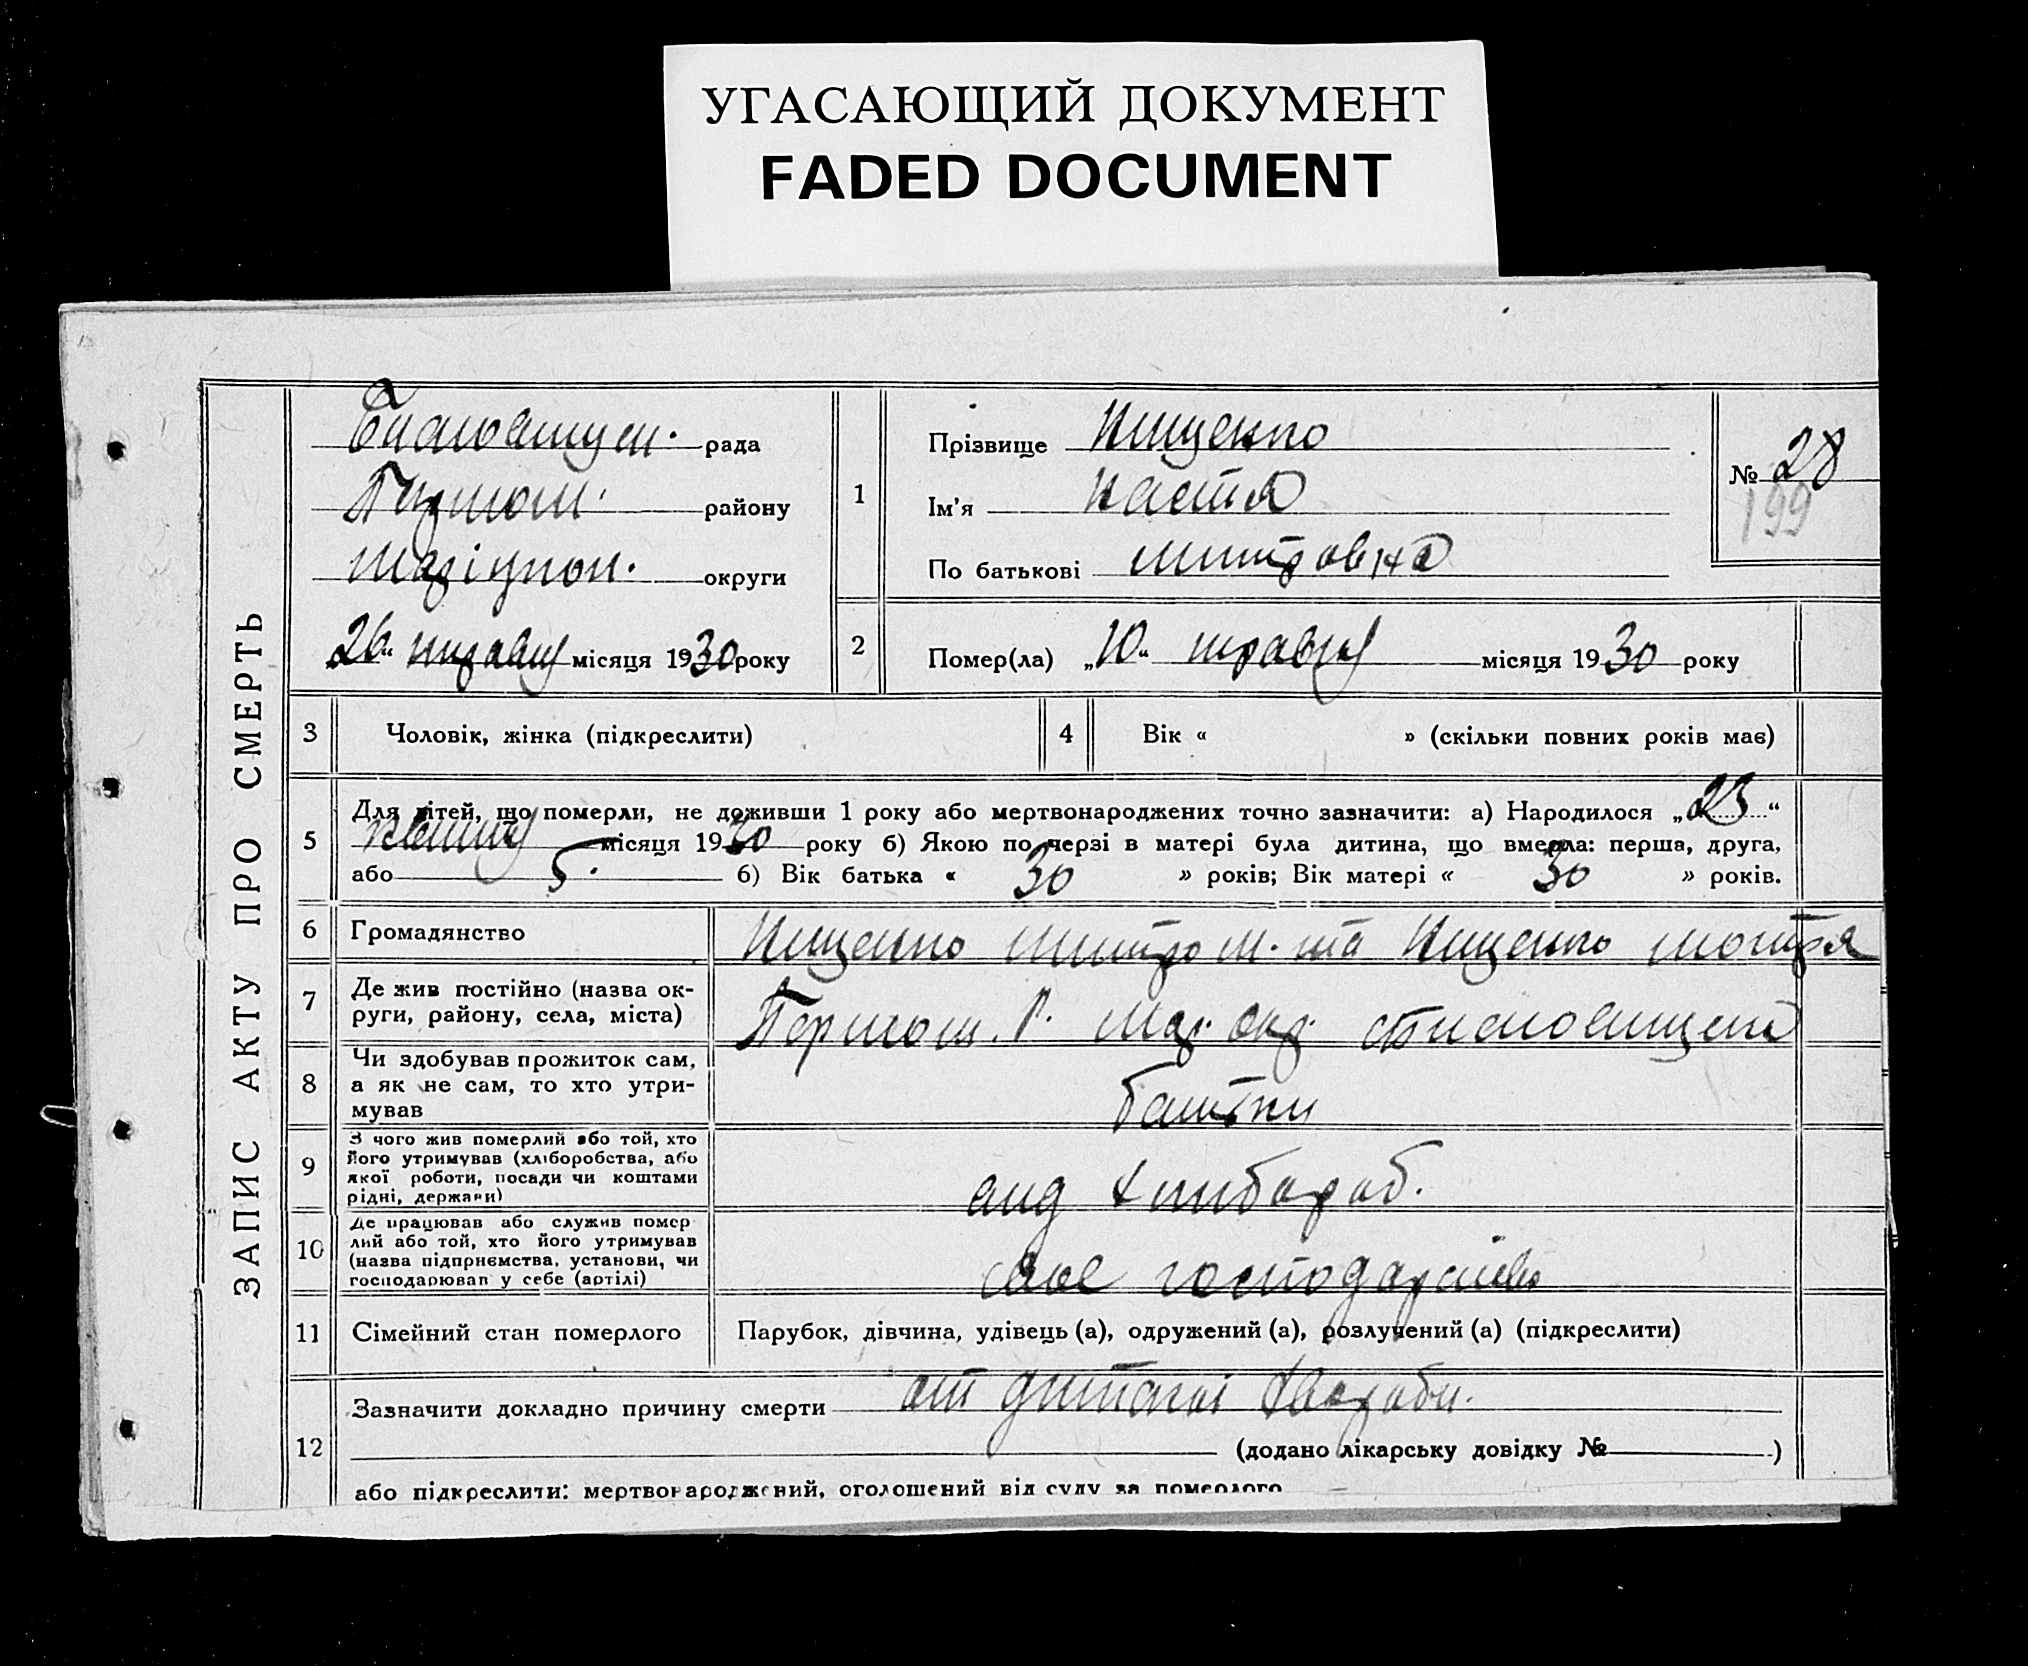 УГАСАЮЩИЙ ДОКУМЕНТ
FADED DOCUMENT
ЗАПИС АКТУ ПРО СМЕРТЬ
рада
району
округи
„26“ травня місяця 1930 року
1
Прізвище Кищенко
Ім'я Настя
По батькові Митровна
№ 28
199
2
Помер(ла) „10“ травня місяця 1930 року
3
Чоловік, жінка (підкреслити)
4
Вік « » (скільки повних років має)
5
Для дітей, що померли, не доживши 1 року або мертвонароджених точно зазначити: а) Народилося „23“
квітня місяця 1930 року б) Якою по черзі в матері була дитина, що вмерла: перша, друга,
або 5. б) Вік батька « 30 » років; Вік матері « 30 » років.
6
Громадянство
Кищенко Митро М. та Кищенко Мотря
7
Де жив постійно (назва ок-
руги, району, села, міста)
8
Чи здобував прожиток сам,
а як не сам, то хто утри-
мував
батьки
9
З чого жив померлий або той, хто
його утримував (хліборобства, або
якої роботи, посади чи коштами
рідні, держави)
хлібороб.
10
Де працював або служив помер
лий або той, хто його утримував
(назва підприємства, установи, чи
господарював у себе (артілі)
своє господарство
11
Сімейний стан померлого
Парубок, дівчина, удівець (а), одружений (а), розлучений (а) (підкреслити)
12
Зазначити докладно причину смерти от дитячої хвороби.
(додано лікарську довідку № )
або підкреслити: мертвонароджений, оголошений від суду за померлого